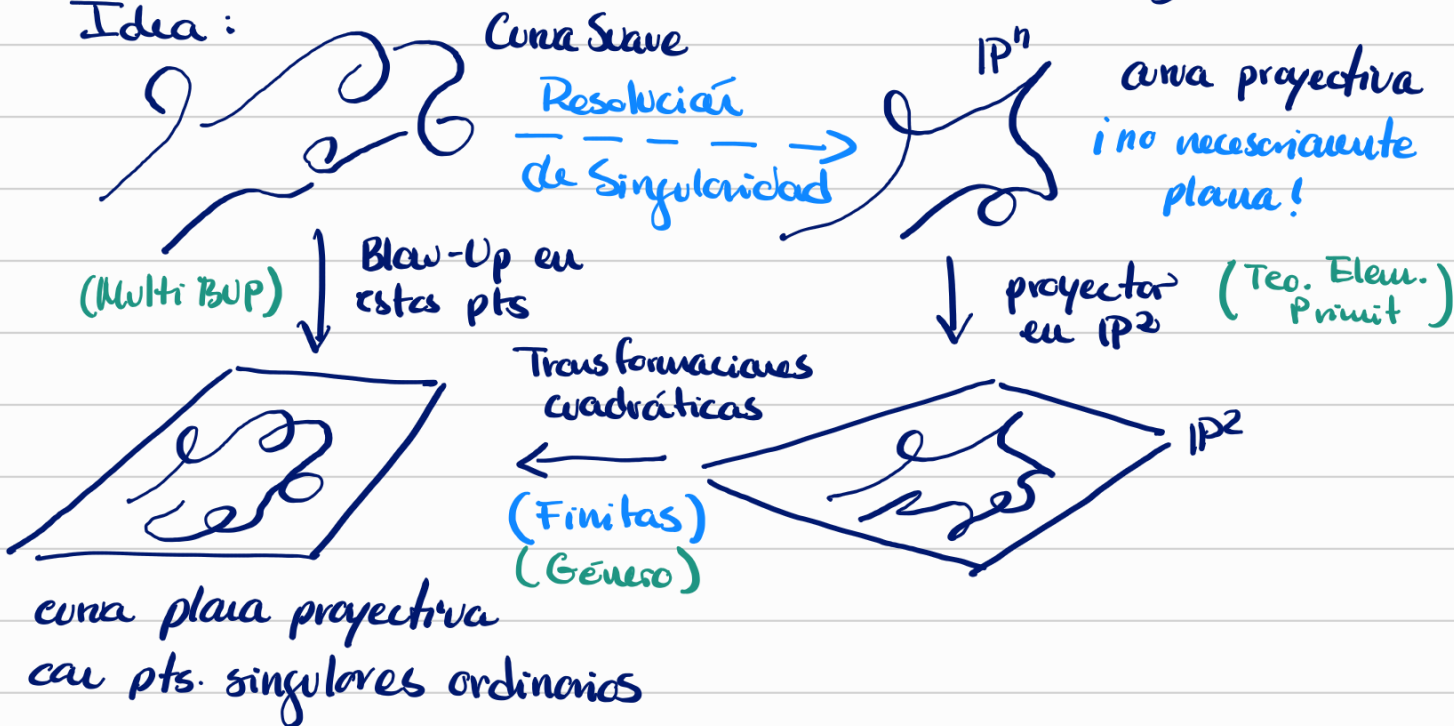 Idea:
Curva Suave
Resolución
de Singularidad
IPⁿ
curva proyectiva
¡no necesariamente
plana!
(Multi BUP)
Blow-Up en
estos pts
proyectar
en IP²
(Teo. Elem.
Primit)
Transformaciones
cuadráticas
(Finitas)
(Género)
IP²
curva plana proyectiva
con pts. singulares ordinarios